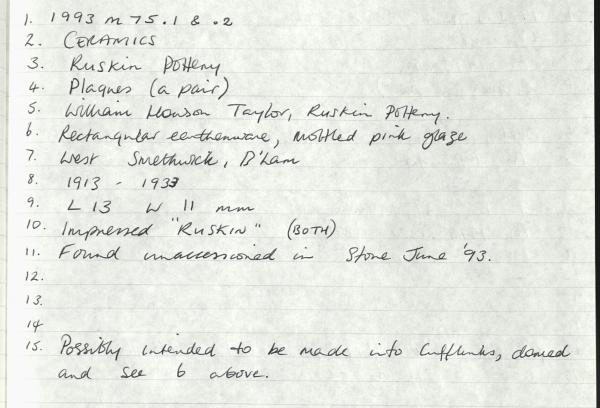 1. 1993 M 75.1 & .2
2. CERAMICS
3. Ruskin Pottery
4. Plaques (a pair)
5. William Howson Taylor, Ruskin Pottery.
6. Rectangular earthenware, mottled pink glaze
7. West Smethwick, B'ham
8. 1913 - 1933
9. L 13 W 11 mm
10. Impressed "RUSKIN" (BOTH)
11. Found unaccessioned in Store June '93.
12.
13.
14
15. Possibly intended to be made into Cufflinks, domed
and see 6 above.